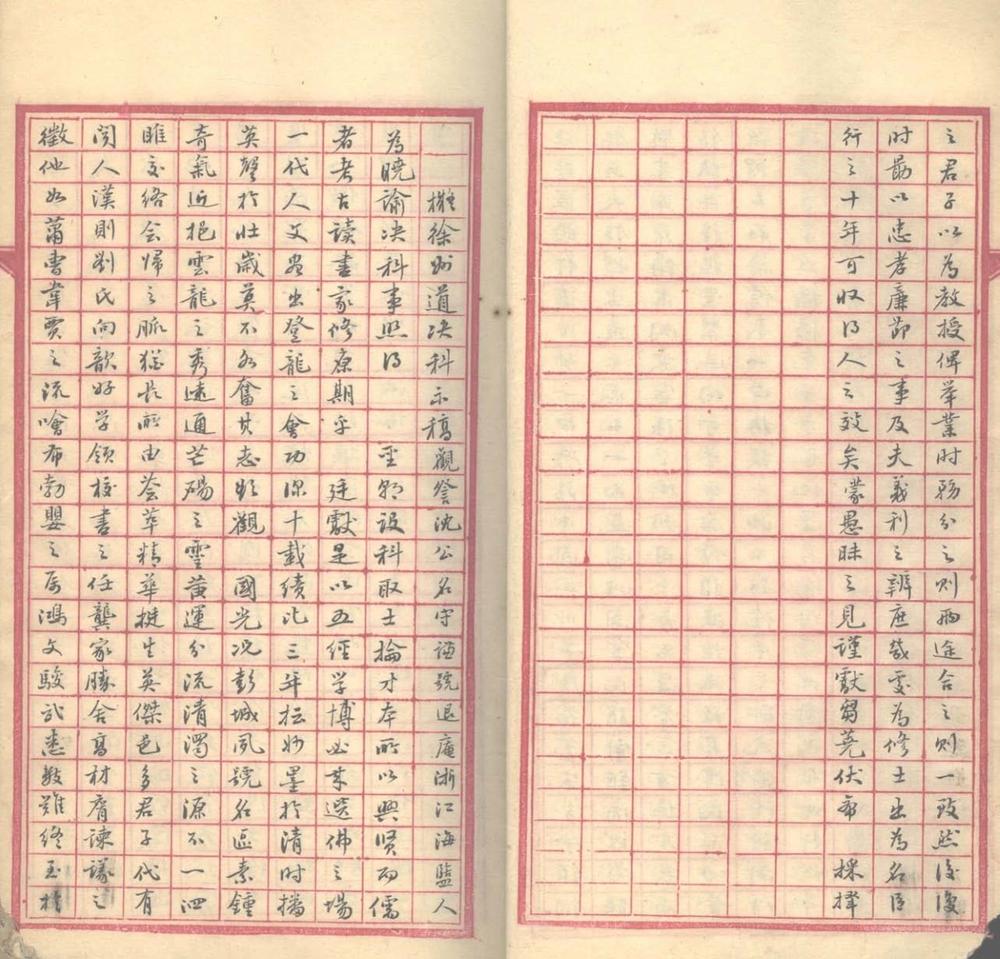 之君子以為教授俾举業时務分之则兩途合之则一致然後復
时勗以忠孝廉節之事及夫義利之辨庶幾處為修士出為名臣
行之十年可收得人之效矣蒙愚昧之見謹獻芻蕘伏希 採擇
擬徐州道决科示稿觀詧沈公名守谦號退庵浙江海盬人
為曉諭决科事照得 聖朝設科取士掄才本所以興贤而儒
者考古讀書家修原期乎 廷獻是以五經学博必来选佛之場
一代人文尽出登龍之會功深十載績比三年抎妙墨於清时播
英聲於壮歲莫不各奮其志 觀國光况彭城夙號名區素鍾
奇氣近挹雲龍之秀遠通芒碭之靈黃運分流清濁之源不一泗
睢交絡會歸之脈猶長所由荟萃精華挺生英傑邑多君子代有
闻人漢則劉氏向歆好学領校書之任龔家勝舍高材膺諫議之
徵他如蕭曹韋賈之流噲布勃嬰之 鴻文駿武悉数難终至於